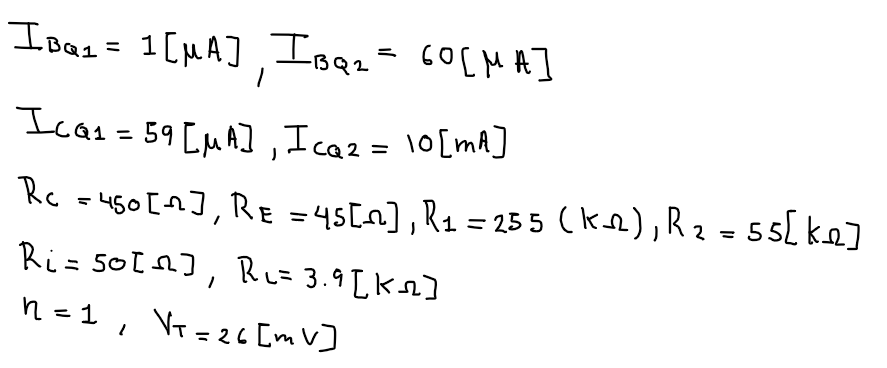 I_BQ1 = 1[μA] , I_BQ2 = 60[μA]
I_CQ1 = 59[μA] , I_CQ2 = 10[mA]
R_C = 450[Ω] , R_E = 45[Ω] , R_1 = 255 (kΩ) , R_2 = 55[kΩ]
R_i = 50[Ω] , R_L = 3.9[kΩ]
n = 1 , V_T = 26[mV]